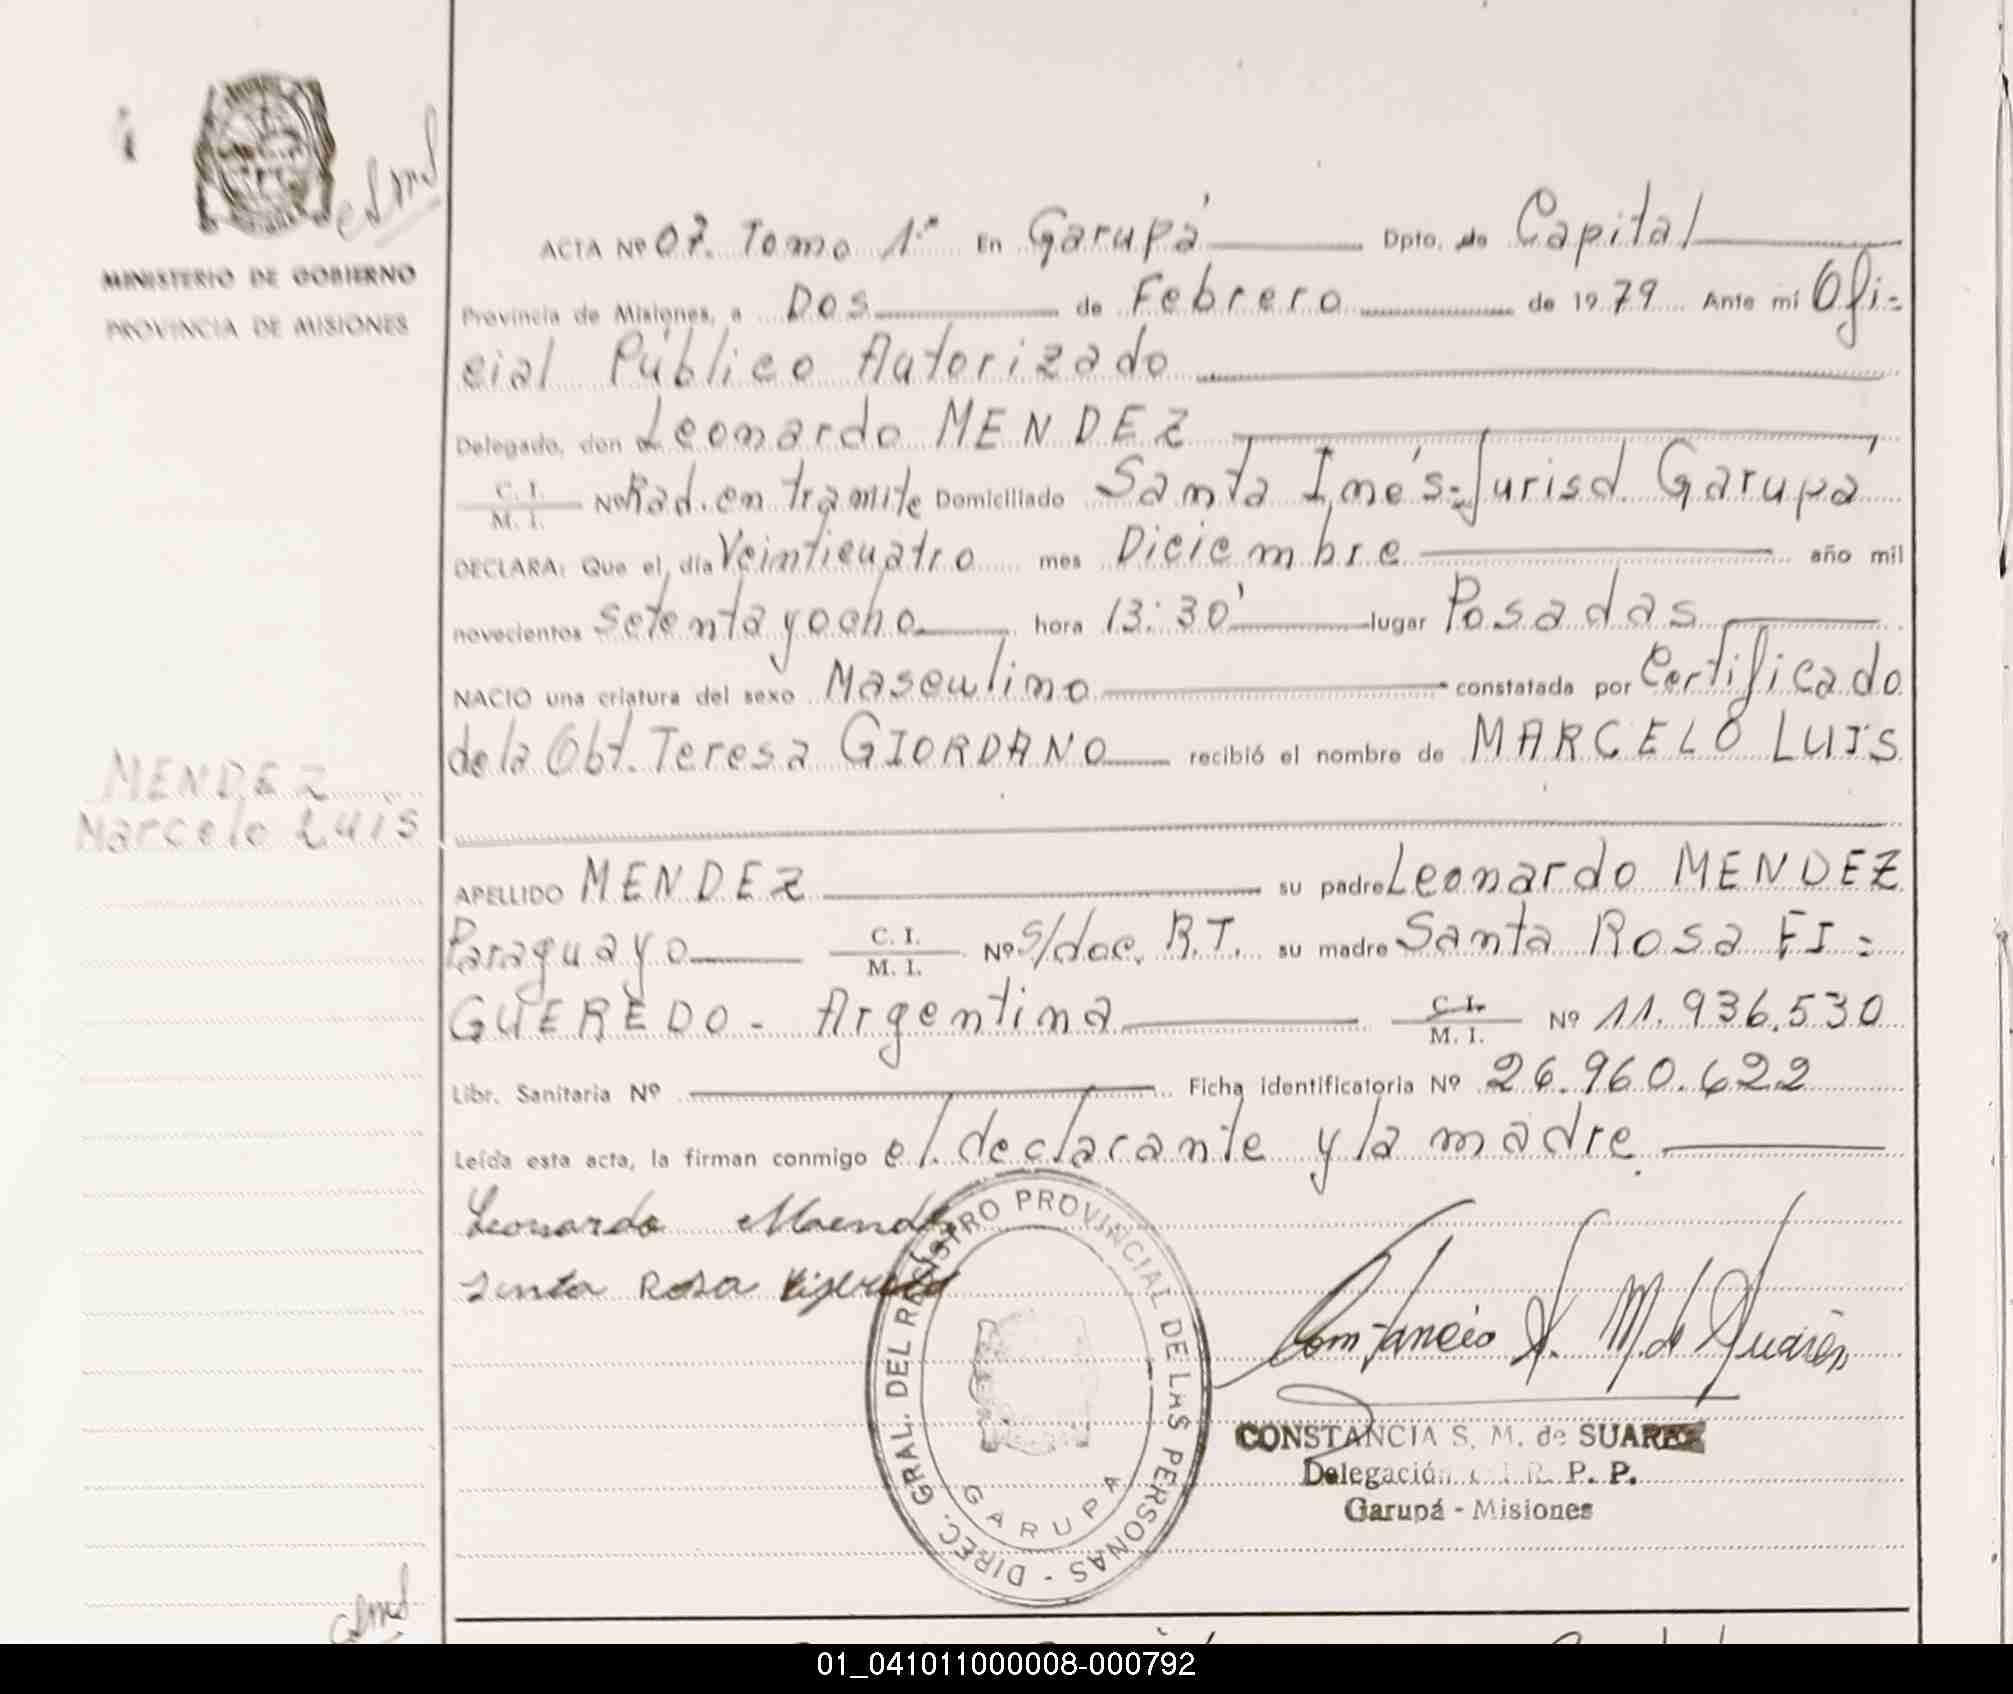 MINISTERIO DE GOBIERNO
PROVINCIA DE MISIONES
ACTA Nº 07. Tomo 1º En Garupá Dpto. de Capital
Provincia de Misiones, a Dos de Febrero de 1979 Ante mí Ofi=
cial Público Autorizado
Delegado, don Leonardo MENDEZ
C. I.
M. I. Nº Rad. en tramite Domiciliado Santa Inés-Jurisd. Garupá
DECLARA: Que el día Veinticuatro mes Diciembre año mil
novecientos setenta y ocho hora 13:30' lugar Posadas
NACIO una criatura del sexo Masculino constatada por Certificado
de la Obt. Teresa GIORDANO recibió el nombre de MARCELO LUIS
MENDEZ
Marcelo Luis
APELLIDO MENDEZ su padre Leonardo MENDEZ
Paraguayo C. I.
M. I. Nº S/doc. R.T. su madre Santa Rosa FI=
GUEREDO - Argentina C. I.
M. I. Nº 11.936.530
Libr. Sanitaria Nº Ficha identificatoria Nº 26.960.622
Leída esta acta, la firman conmigo el declarante y la madre.
Leonardo
Santa Rosa
DIREC. GRAL. DEL REGISTRO PROVINCIAL DE LAS PERSONAS -
GARUPA
Constancia S. M. de Suárez
CONSTANCIA S. M. de SUAREZ
Delegación del R. P. P.
Garupá - Misiones
01_041011000008-000792